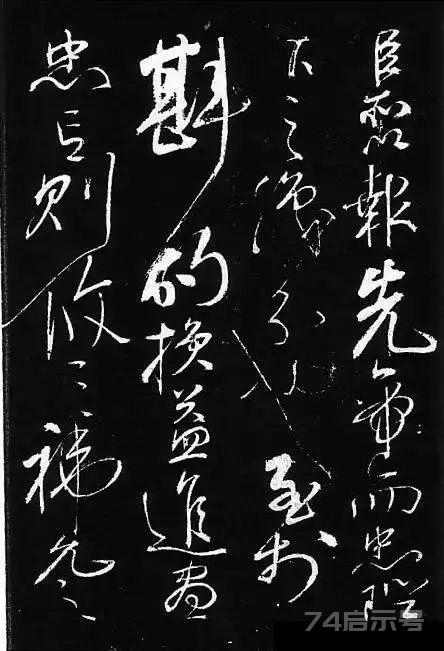 臣所以報先帝而忠陛
下之職分也至於
斟酌損益進盡
忠言則攸之禕允之
74启示号